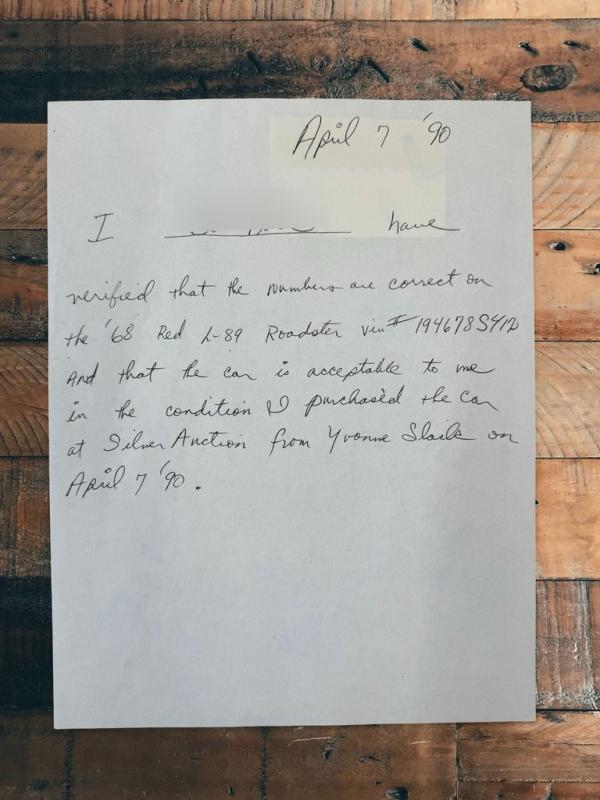 April 7 '90
I have
verified that the numbers are correct on
the '68 Red L-89 Roadster vin#
And that the car is acceptable to me
in the condition I purchased the car
at Silver Auction from Yvonne on
April 7 '90.